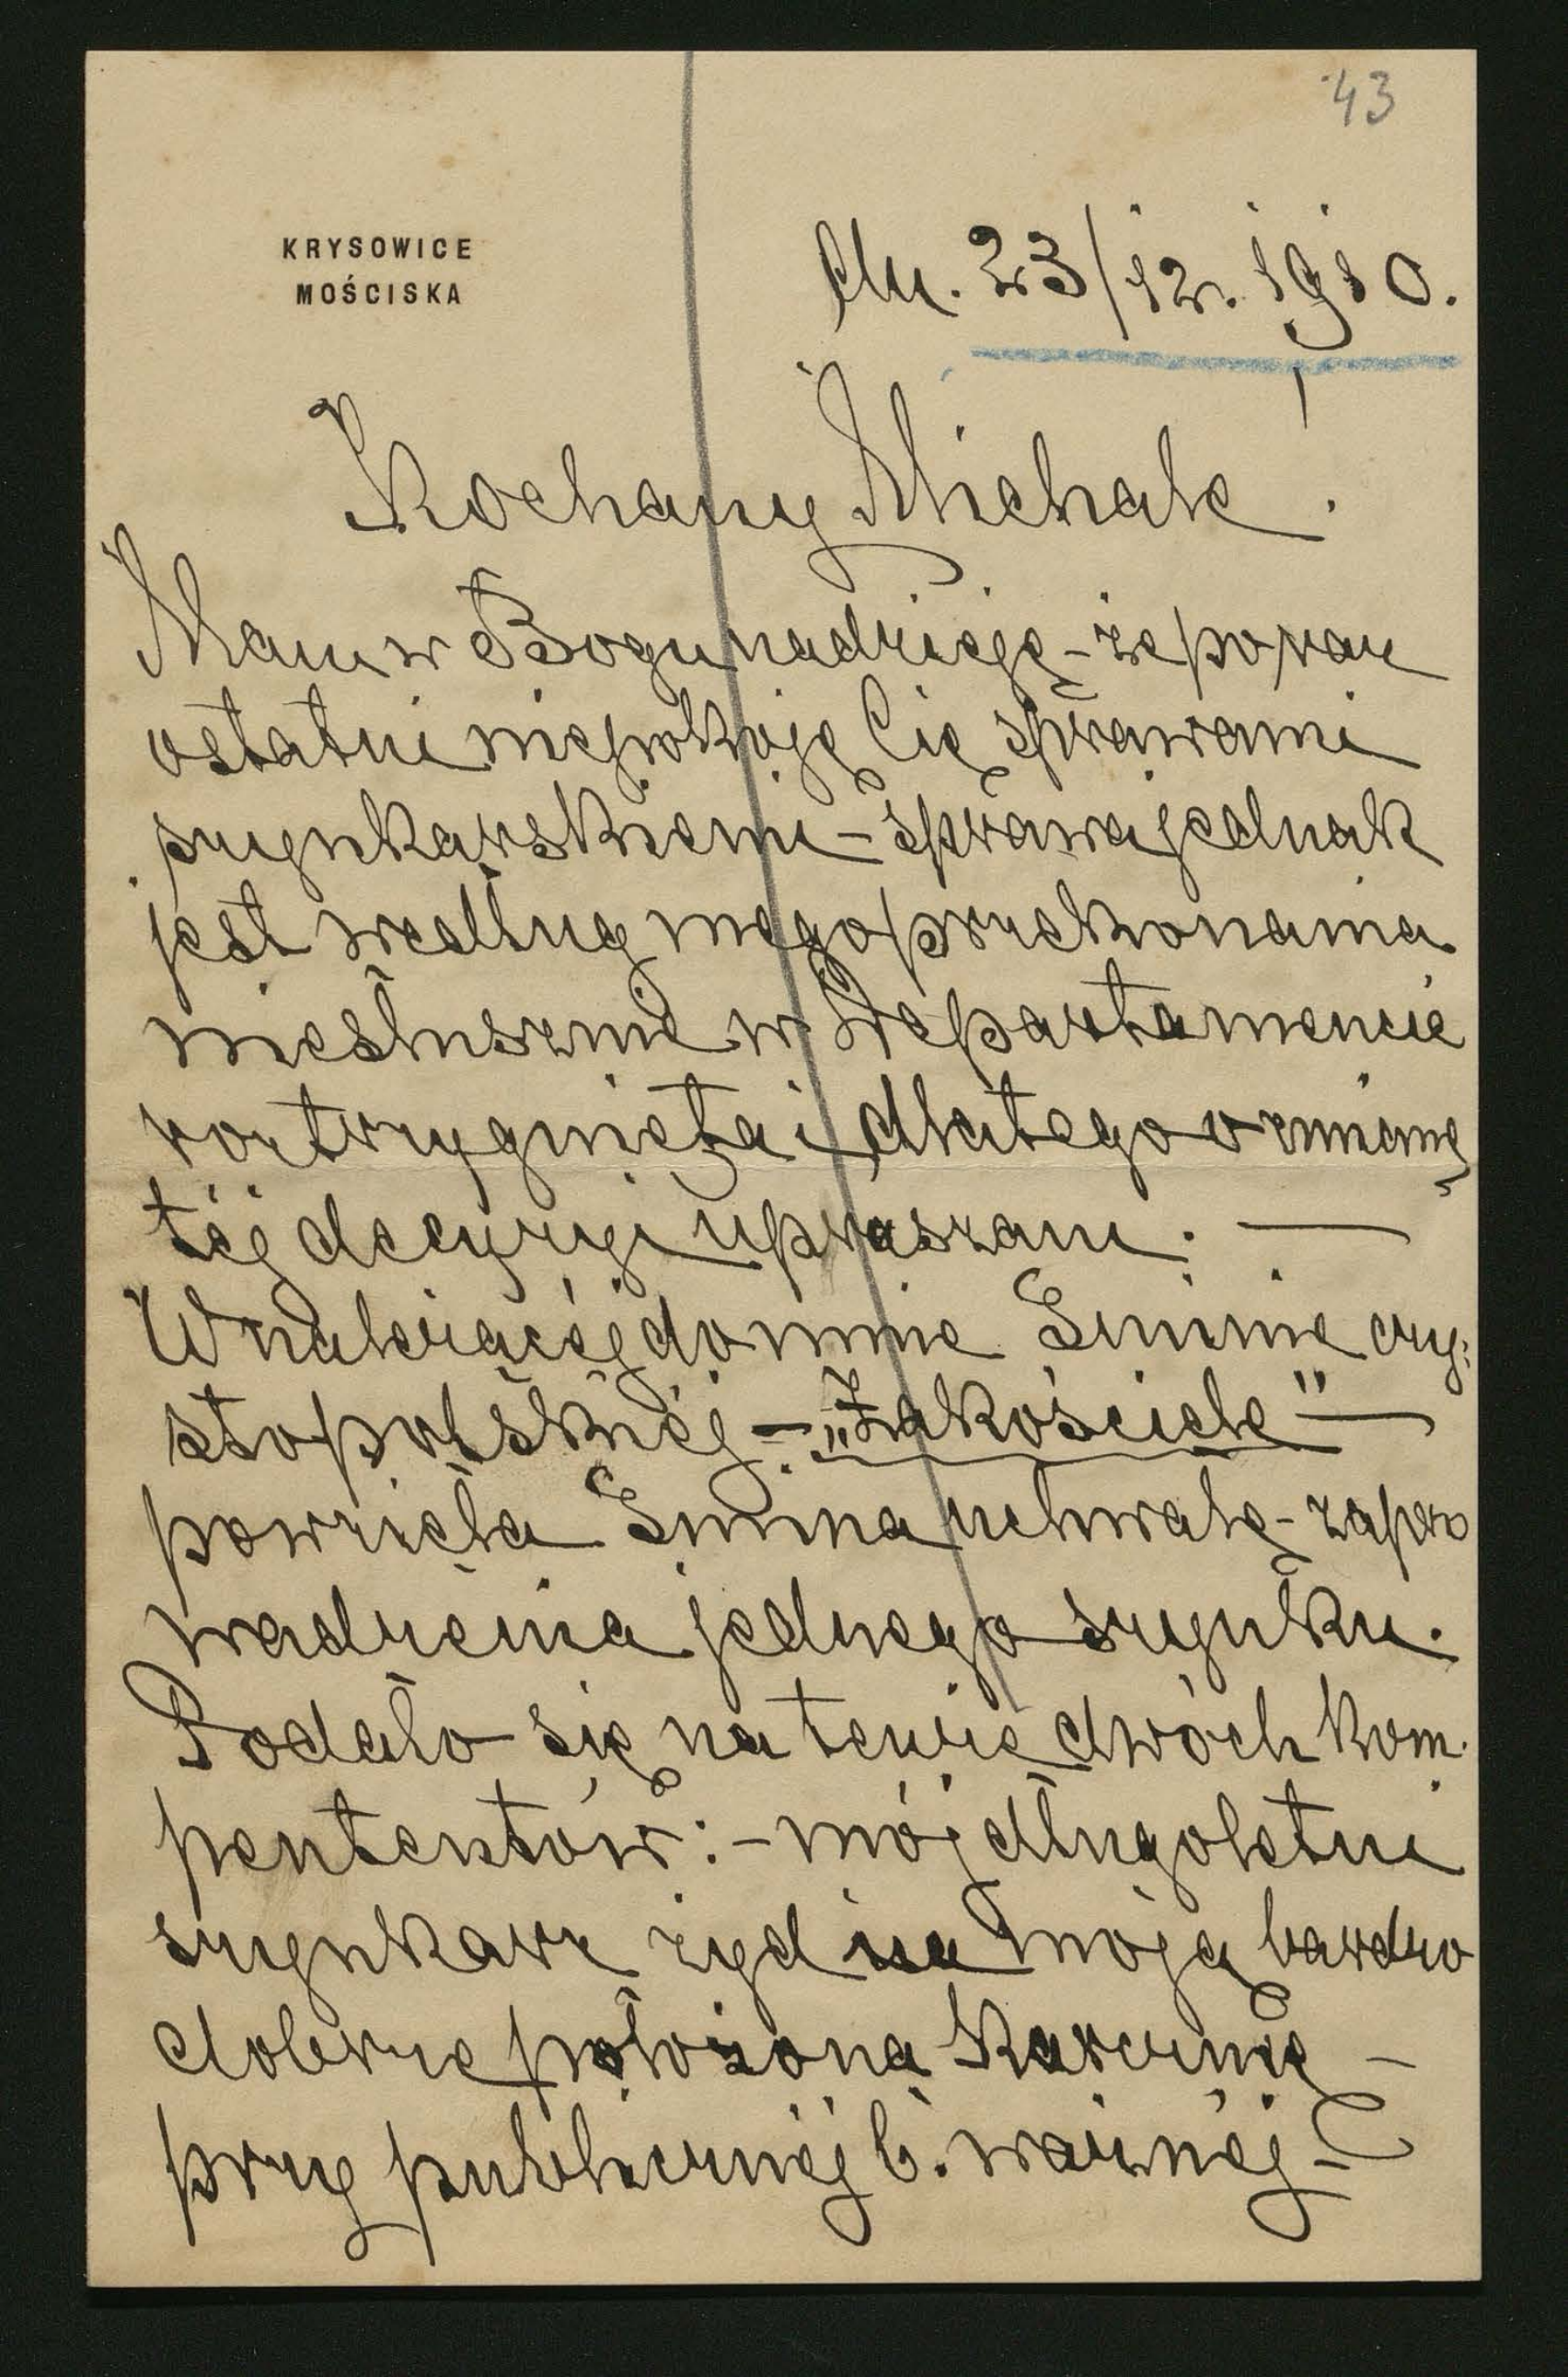 43
KRYSOWICE
MOŚCISKA
dn. 23/12. 1910.
Kochany Michale!
Mam w Bogu nadzieję - że po raz
ostatni niepokoję Cię sprawami
szynkarskiemi - sprawa jednak
jest według mego przekonania
niesłusznie w Departamencie
rozstrzygnięta i dlatego o zmianę
téj decyzyi upraszam. —
W należącéj do mnie Gminie czy-
sto polskiéj - „Zakościele" —
powzięła Gmina uchwałę - zapro
wadzenia jednego szynku.
Podało się na tenże dwóch kom-
pententów: - mój długoletni
szynkarz żyd na moją bardzo
dobrze położoną karczmę -
przy publicznéj b. ważnéj -